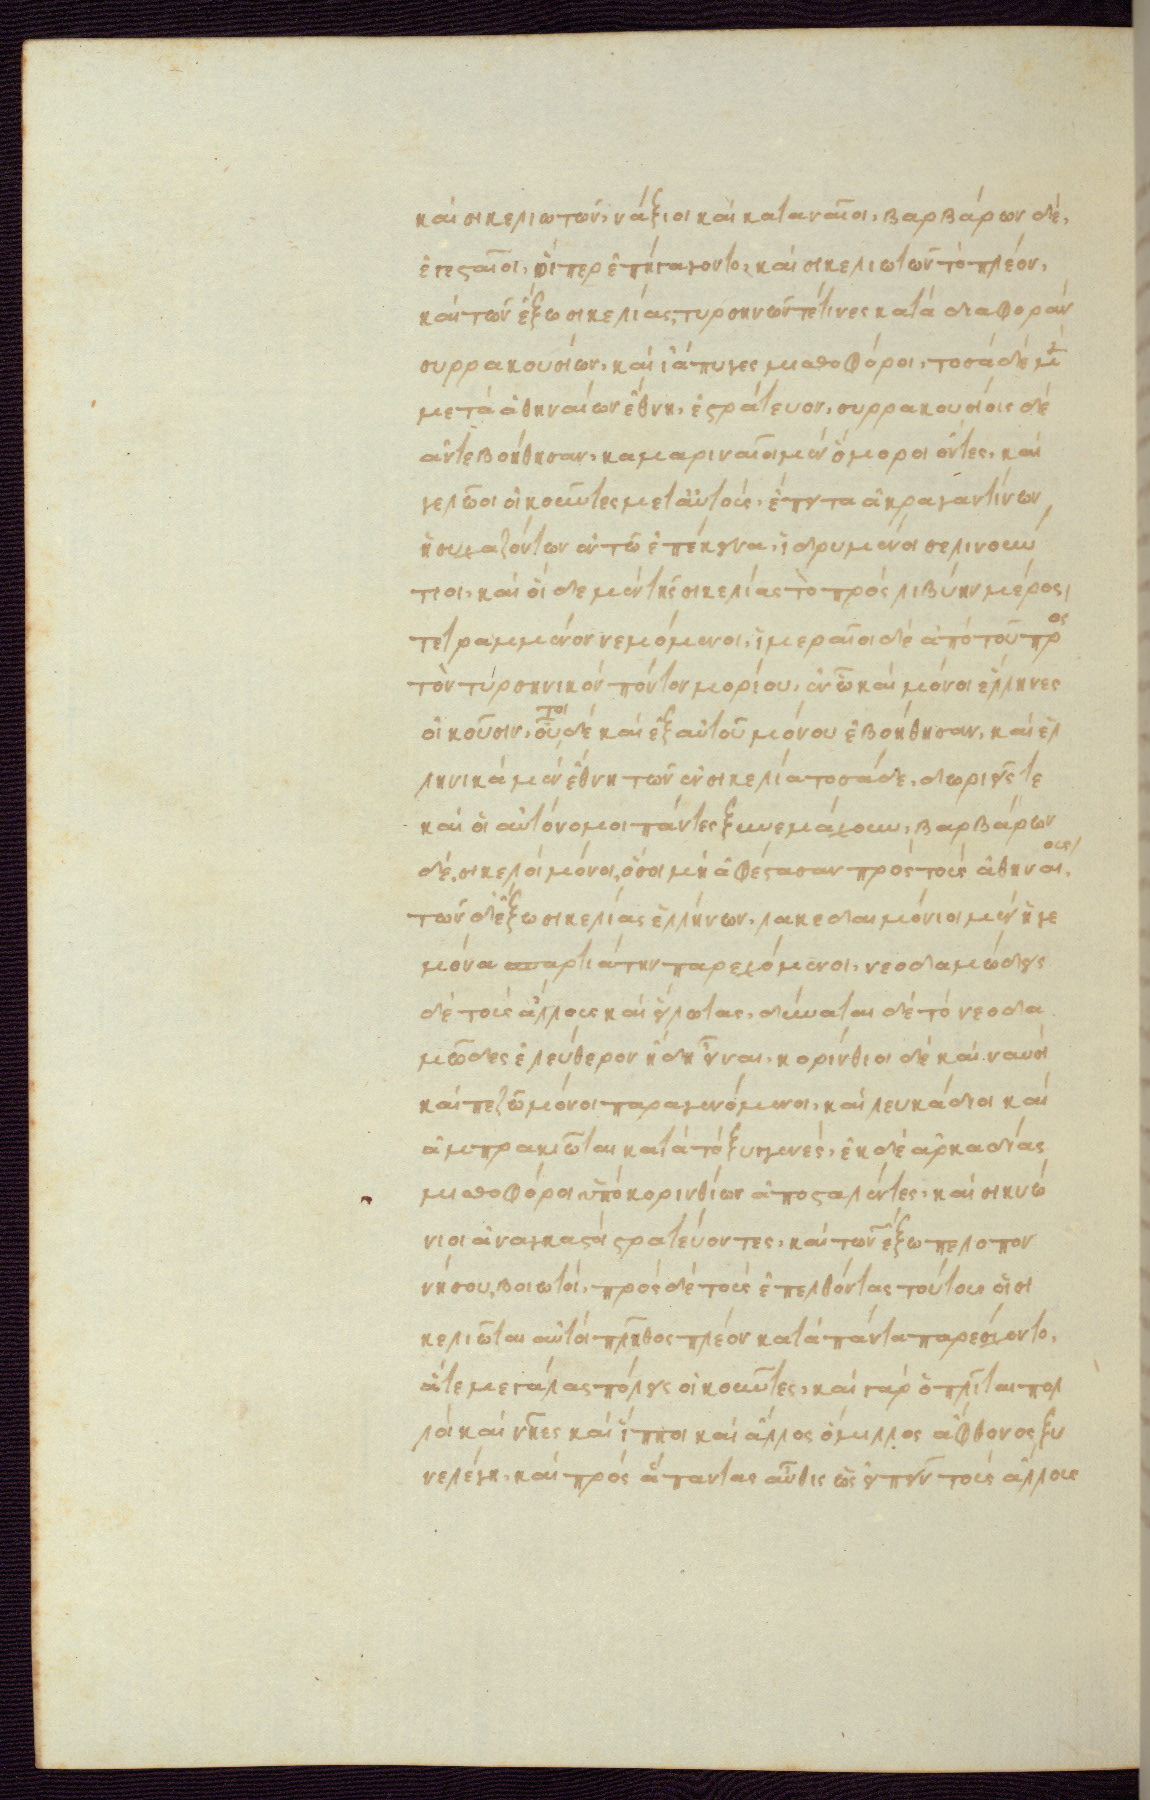 καὶ σικελιωτῶν, νάξιοι καὶ καταναῖοι, βαρβάρων δὲ,
ἐγεσταῖοι, οἵπερ ἐπηγάγοντο, καὶ σικελιωτῶν τὸ πλέον,
καὶ τῶν ἔξω σικελίας, τυρσηνῶν τέ τινες κατὰ διαφορὰν
συρρακουσίων, καὶ ἰάπυγες μισθοφόροι, τοσάδε μὲν
μετὰ ἀθηναίων ἔθνη, ἐστράτευον, συρρακουσίοις δὲ
ἀντεβοήθησαν, καμαριναῖοι μὲν ὅμοροι ὄντες, καὶ
γελῶοι οἰκοῦντες μετ' αὐτοὺς, ἔπειτα ἀκραγαντίνων
ἡσυχαζόντων ἐν τῶ ἐπέκεινα, ἱδρυμένοι σελινούν
τιοι, καὶ οἵδε μὲν τῆς σικελίας τὸ πρὸς λιβύην μέρος,
τετραμμένον νεμόμενοι, ἱμεραῖοι δὲ ἀπὸ τοῦ πρὸς
τὸν τύρσηνικὸν πόντον μορίου, ἐν ὧ καὶ μόνοι ἕλληνες
οἰκοῦσιν, οὗτοι δὲ καὶ ἐξ αὐτοῦ μόνου ἐβοήθησαν, καὶ ἑλ
ληνικὰ μὲν ἔθνη τῶν ἐν σικελία τοσάδε, δωριεῖς τε
καὶ οἱ αὐτόνομοι πάντες ξυνεμάχουν, βαρβάρων
δὲ, σικελοὶ μόνοι, ὅσοι μὴ ἀφέστασαν πρὸς τοὺς ἀθηναίους,
τῶν δ' ἔξω σικελίας ἑλλήνων, λακεδαιμόνιοι μὲν ἡγε
μόνα σπαρτιάτην παρεχόμενοι, νεοδαμώδεις
δὲ τοὺς ἄλλους καὶ εἵλωτας, δύναται δὲ τὸ νεοδα
μῶδες ἐλεύθερον ἤδη εἶναι, κορίνθιοι δὲ καὶ ναυσὶ
καὶ πεζῶ μόνοι παραγενόμενοι, καὶ λευκάδιοι καὶ
ἀμπρακιῶται κατὰ τὸ ξυγγενὲς, ἐκ δὲ ἀρκαδίας
μισθοφόροι ὑπὸ κορινθίων ἀποσταλέντες, καὶ σικυώ
νιοι ἀναγκαστοὶ στρατεύοντες, καὶ τῶν ἔξω πελοπον
νήσου, βοιωτοὶ, πρὸς δὲ τοὺς ἐπελθόντας τούτους οἱ σι
κελιῶται αὐτοὶ πλῆθος πλέον κατὰ πάντα παρέσχοντο,
ἅτε μεγάλας πόλεις οἰκοῦντες, καὶ γὰρ ὁπλῖται πολ
λοὶ καὶ νῆες καὶ ἵπποι καὶ ἄλλος ὅμιλλος ἄφθονος ξυ
νελέγη, καὶ πρὸς ἅπαντας αὖθις ὡς εἰπεῖν τοὺς ἄλλους